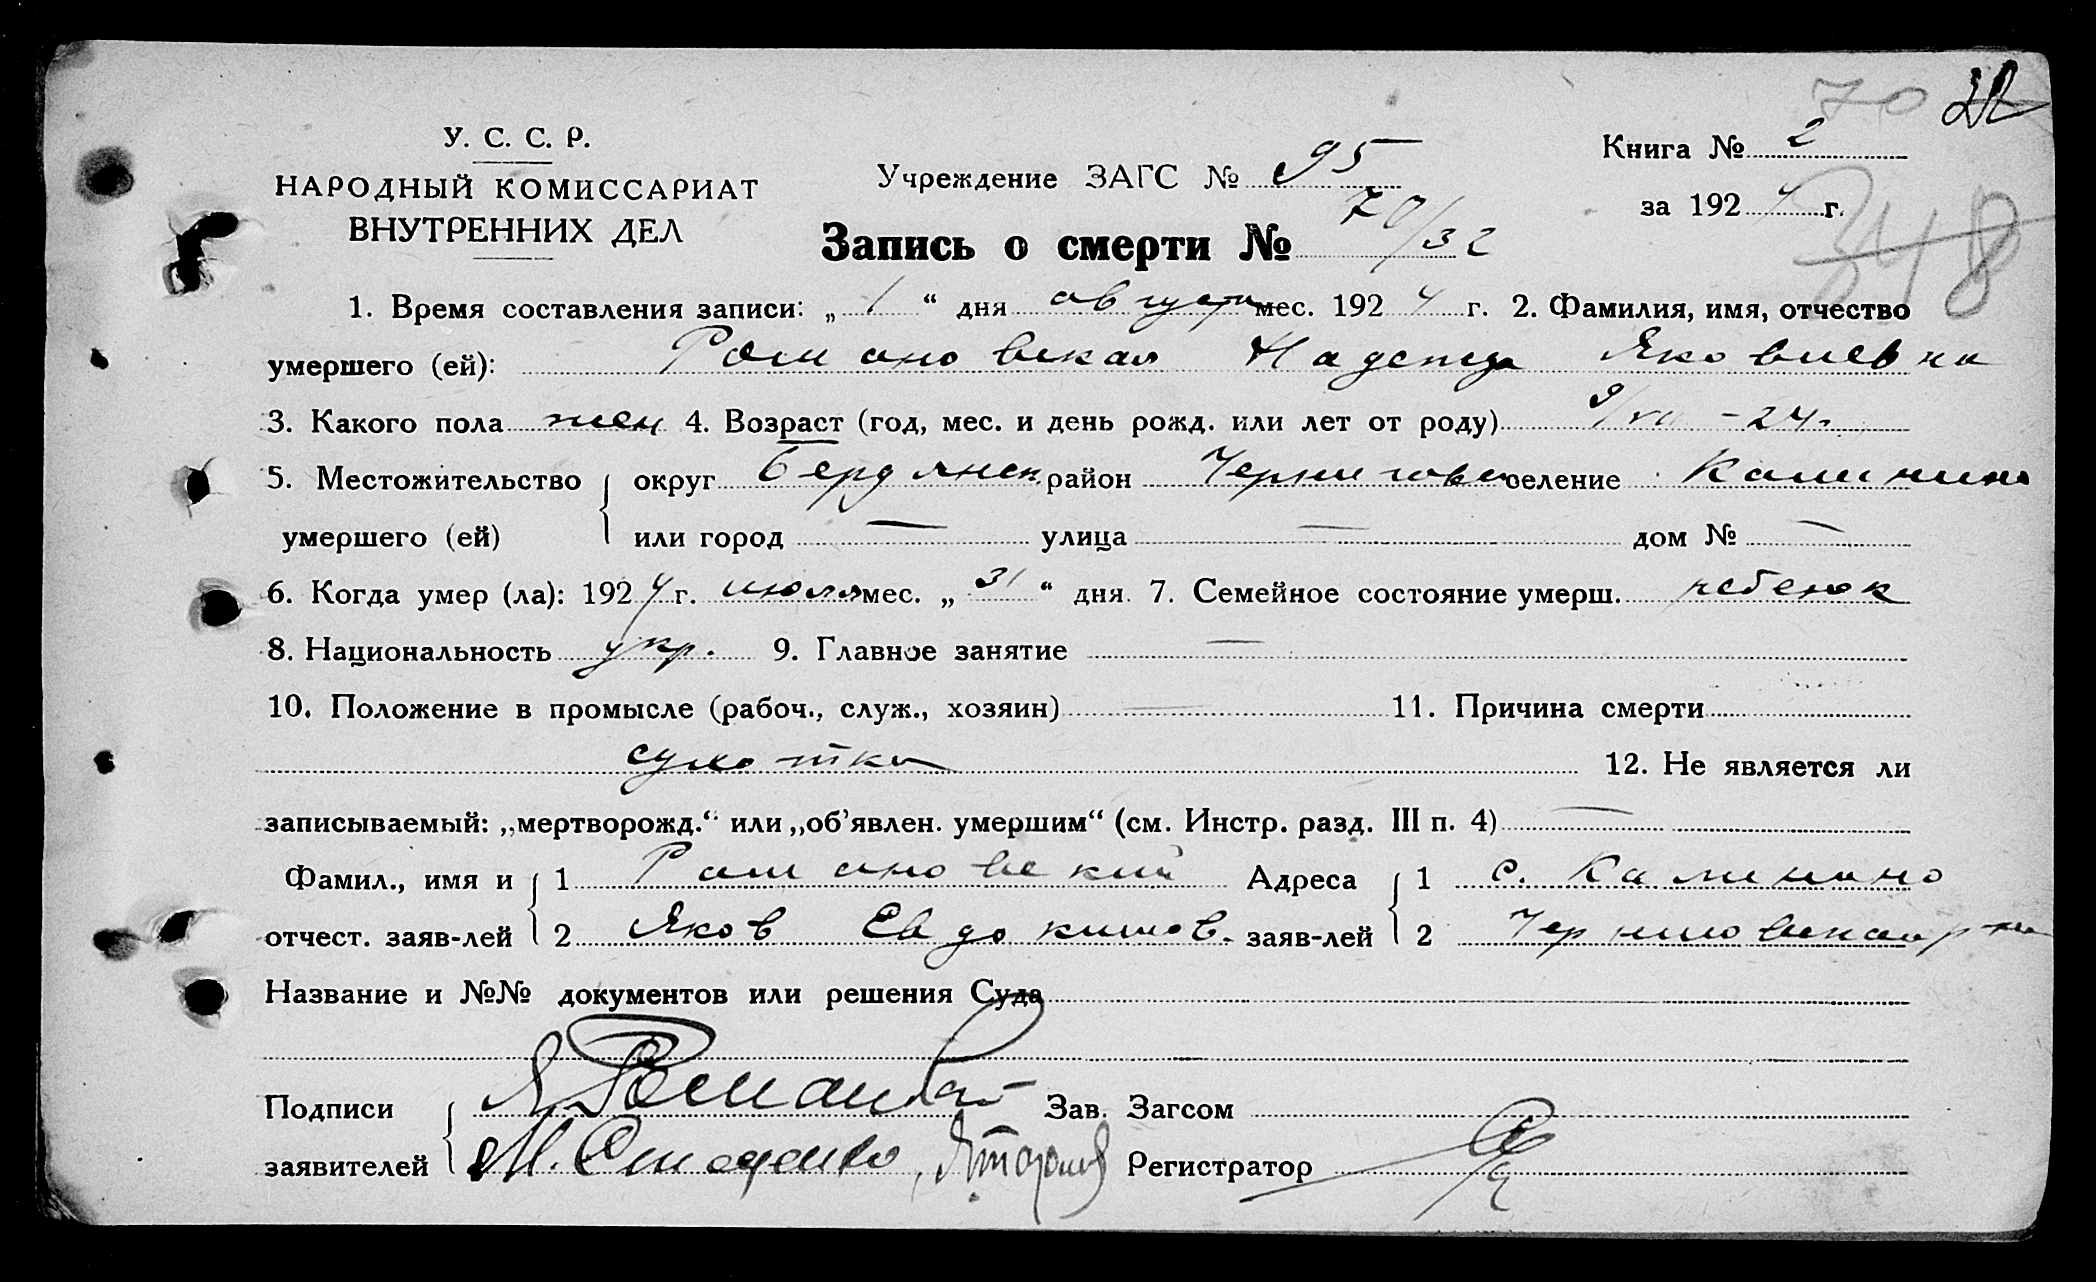 70 32
У. С. С. Р.
НАРОДНЫЙ КОМИССАРИАТ
ВНУТРЕННИХ ДЕЛ
Учреждение ЗАГС № 95
Книга № 2
за 1924 г.
348
Запись о смерти № 70/32
1. Время составления записи: „1“ дня августа мес. 1924 г. 2. Фамилия, имя, отчество
умершего (ей): Романовская Надежда Яковлевна
3. Какого пола жен 4. Возраст (год, мес. и день рожд. или лет от роду) 9/VII - 24.
5. Местожительство округ Бердянск. район Черниговск селение Калинино
умершего (ей) или город — улица — дом № —
6. Когда умер (ла): 1924 г. июля мес. „31“ дня. 7. Семейное состояние умерш. ребенок
8. Национальность укр. 9. Главное занятие —
10. Положение в промысле (рабоч., служ., хозяин) — 11. Причина смерти
сухотка 12. Не является ли
записываемый: „мертворожд.“ или „об’явлен. умершим“ (см. Инстр. разд. III п. 4) —
Фамил., имя и 1 Романовский Адреса 1 с. Калинино
отчест. заяв-лей 2 Яков Евдокимов. заяв-лей 2
Название и №№ документов или решения Суда
Подписи Я Романовский Зав. Загсом
заявителей М. Регистратор